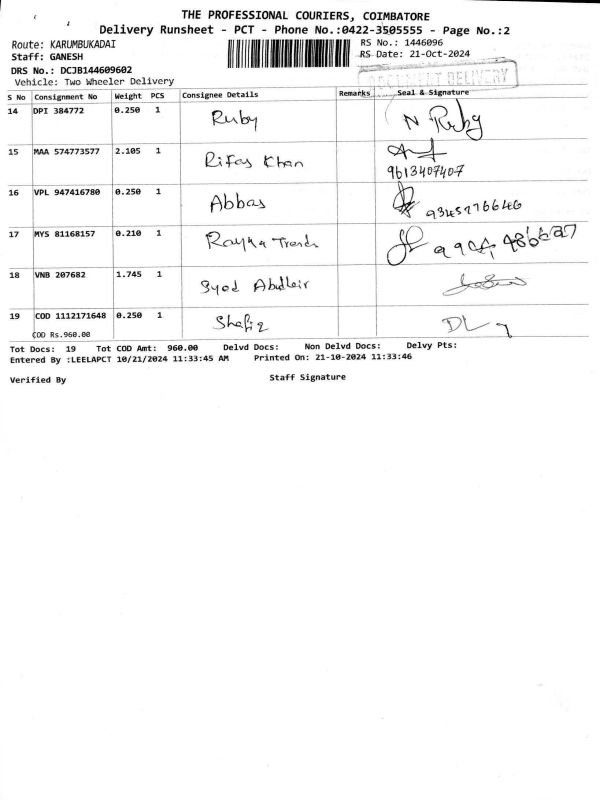 THE PROFESSIONAL COURIERS, COIMBATORE
Delivery Runsheet - PCT - Phone No.:0422-3505555 - Page No.:2
Route: KARUMBUKADAI RS No.: 1446096
Staff: GANESH RS Date: 21-Oct-2024
DRS No.: DCJB144609602
Vehicle: Two Wheeler Delivery DELIVERY
S No Consignment No Weight PCS Consignee Details Remarks Seal & Signature
14 DPI 384772 0.250 1 Ruby N Ruby
15 MAA 574773577 2.105 1 Rifas Khan
9613407407
16 VPL 947416780 0.250 1 Abbas 9345276646
17 MYS 81168157 0.210 1 Rayka Trends
18 VNB 207682 1.745 1 Syed
19 COD 1112171648 0.250 1 Shafiq
COD Rs.960.00
Tot Docs: 19 Tot COD Amt: 960.00 Delvd Docs: Non Delvd Docs: Delvy Pts:
Entered By :LEELAPCT 10/21/2024 11:33:45 AM Printed On: 21-10-2024 11:33:46
Verified By Staff Signature